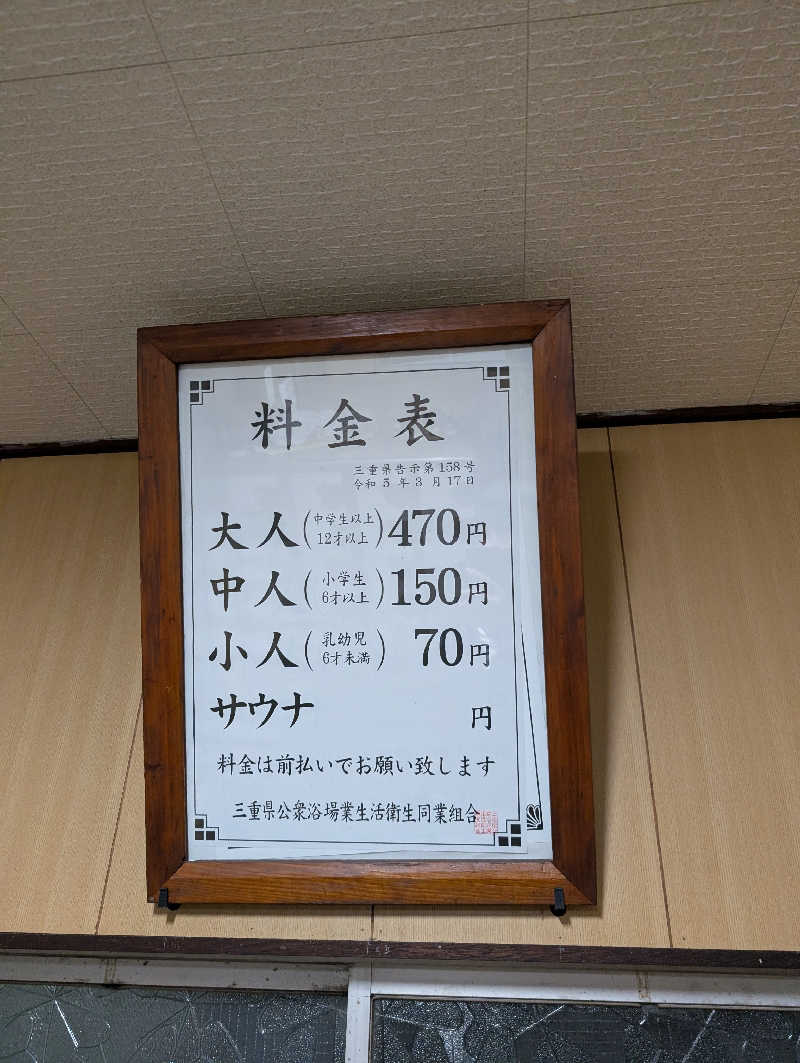 料金表
三重県告示第158号
令和5年3月17日
大人(中学生以上 12才以上)470円
中人(小学生 6才以上)150円
小人(乳幼児 6才未満)70円
サウナ 円
料金は前払いでお願い致します
三重県公衆浴場業生活衛生同業組合